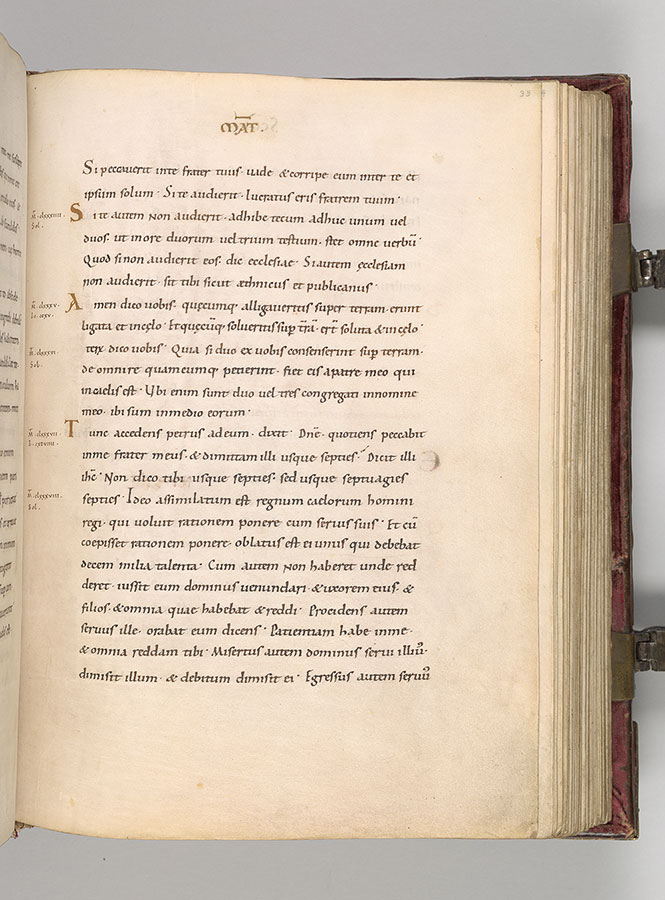 33
MAT.
Si peccaverit inte frater tuus. uade & corripe eum inter te et
ipsum solum. Si te audierit. lucratus eris fratrem tuum.
Si te autem non audierit. adhibe tecum adhuc unum uel
duos. ut inore duorum uel trium testium. stet omne uerbū.
Quod si non audierit eos. dic ecclesiae. Si autem ęcclesiam
non audierit. sit tibi sicut aethnicus et publicanus.
Amen dico uobis. quęcumq; alligaueritis super terram. erunt
ligata et incęlo. Et quęcūq; solueritis sup̄ trā. erūt soluta & incęlo.
dico uobis. Quia si duo ex uobis consenserint sup̄ terram.
de omni re quamcumq; petierint. fiet eis apatre meo qui
incaelis est. Ubi enim sunt duo uel tres congregati innomine
meo. ibi sum inmedio eorum.
Tunc accedens petrus ad eum. dixit. Dnē. quotiens peccabit
inme frater meus. & dimittam illi usque septies. Dicit illi
ihc̄. Non dico tibi usque septies. sed usque septuagies
septies. Ideo assimilatum est regnum caelorum homini
regi. qui uoluit rationem ponere cum seruis suis. Et cū
coepisset rationem ponere. oblatus est ei unus qui debebat
decem milia talenta. Cum autem non haberet unde red
deret. iussit eum dominus uenundari. & uxorem eius. &
filios. & omnia quae habebat & reddi. Procidens autem
seruus ille. orabat eum dicens. Patientiam habe inme.
& omnia reddam tibi. Misertus autem dominus serui illius.
dimisit illum. & debitum dimisit ei. Egressus autem seruus